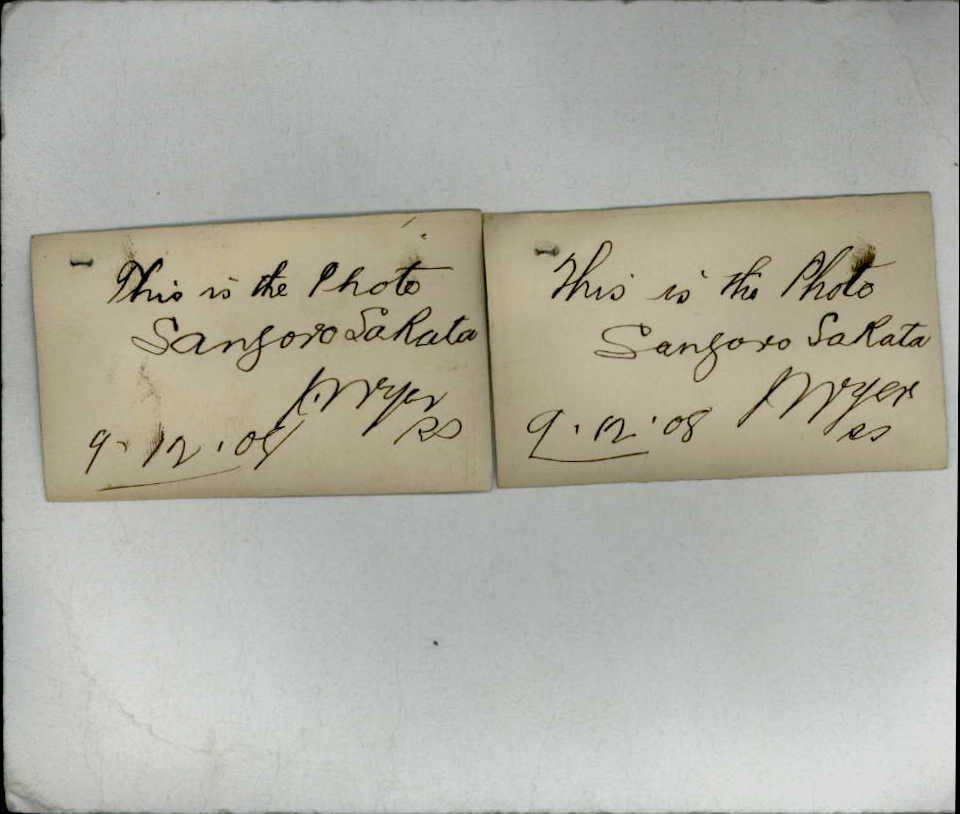 This is the Photo
Sangoro Sakata
9.12.08
This is the Photo
Sangoro Sakata
9.12.08